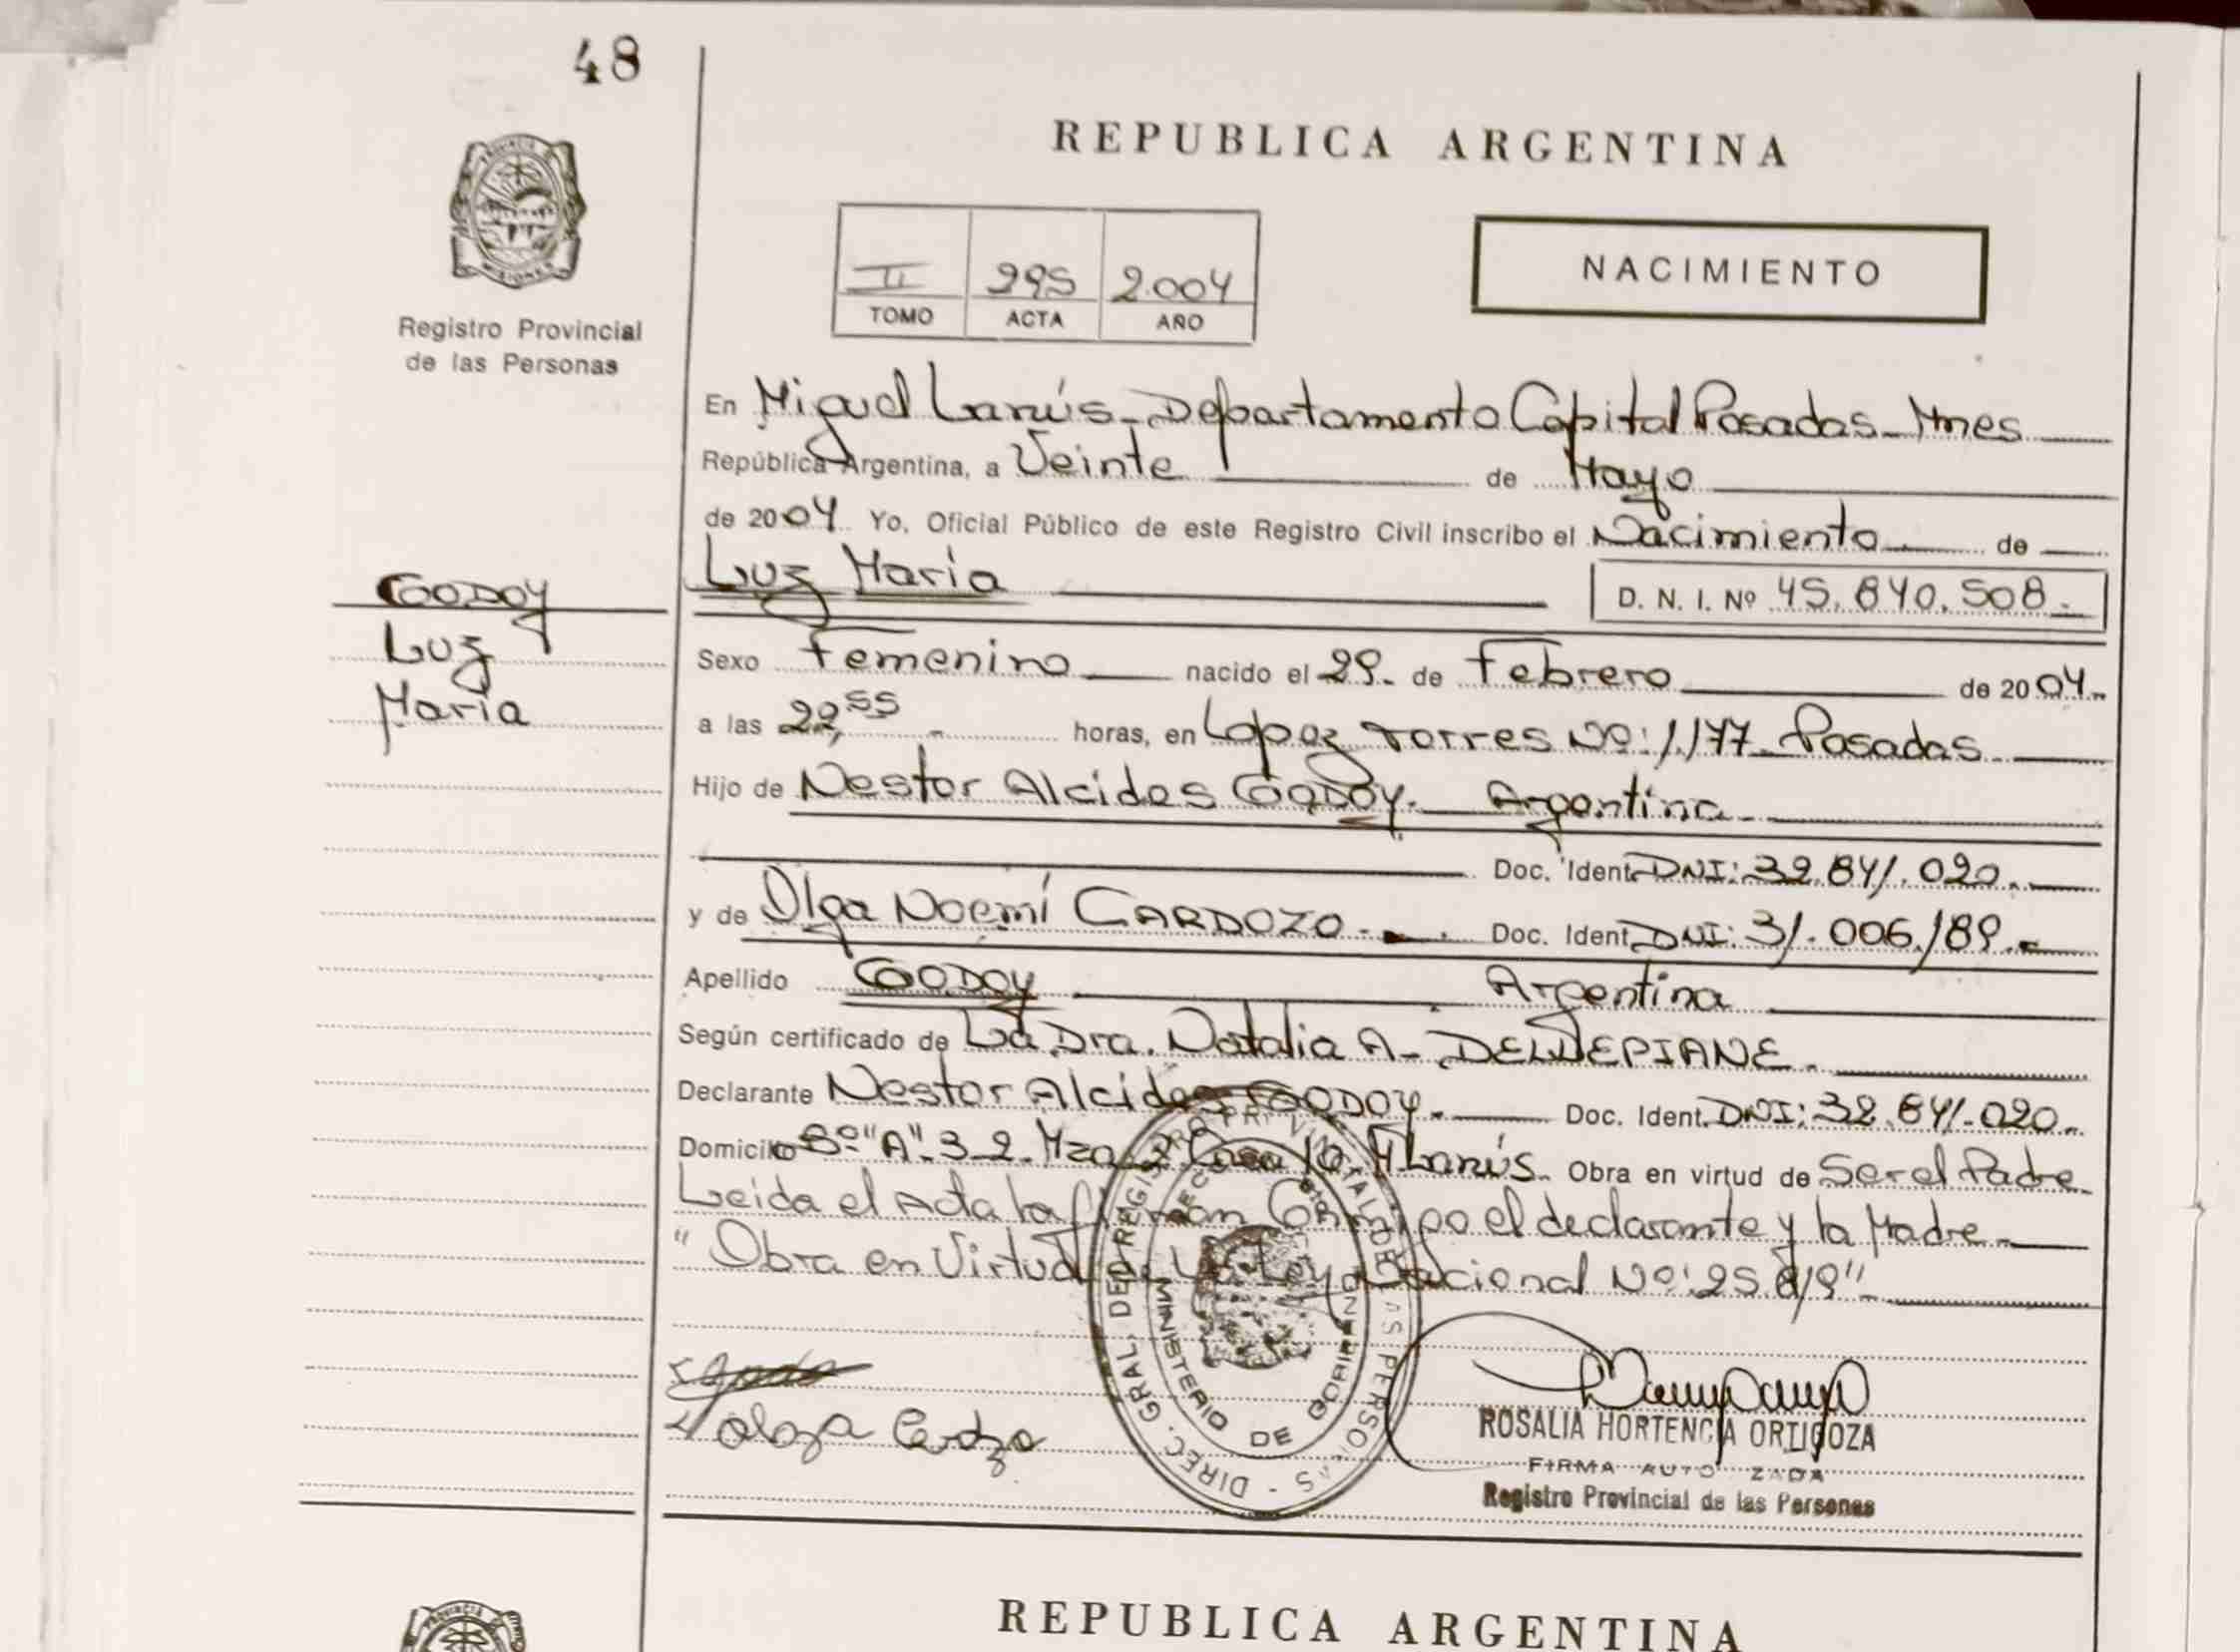 48
REPUBLICA ARGENTINA
II 295 2.004
TOMO ACTA AÑO
NACIMIENTO
MISIONES
Registro Provincial
de las Personas
En Miguel Lanús - Departamento Capital Posadas - Mnes
República Argentina, a Veinte de Mayo
de 2004 Yo, Oficial Público de este Registro Civil inscribo el Nacimiento de
Luz María D. N. I. Nº 45.840.508.-
GODOY
Luz
María
Sexo Femenino nacido el 29- de Febrero de 2004-
a las 22,55 - horas, en Lopez Torres Nº: 1.177- Posadas
Hijo de Nestor Alcides GODOY- Argentina-
Doc. Ident. DNI: 32.841.020.-
y de Olga Noemí CARDOZO.- Doc. Ident. DNI: 31.006.189.-
Apellido GODOY Argentina
Según certificado de La Dra. Natalia A- DELLEPIANE.
Declarante Nestor Alcides GODOY.- Doc. Ident. DNI: 32.841.020-
Domicilio Bº "A"-3-2- Mza 2 Casa 10- M Lanús- Obra en virtud de Ser el Padre
Leida el Acta la firman Conmigo el declarante y la Madre-
"Obra en Virtud de La Ley Nacional Nº: 25.819"-
DIREC. GRAL. DEL REGISTRO PROVINCIAL DE LAS PERSONAS -
MINISTERIO DE GOBIERNO
Olga Cardozo
ROSALIA HORTENCIA ORTIGOZA
FIRMA AUTORIZADA
Registro Provincial de las Personas
PROVINCIA
REPUBLICA ARGENTINA